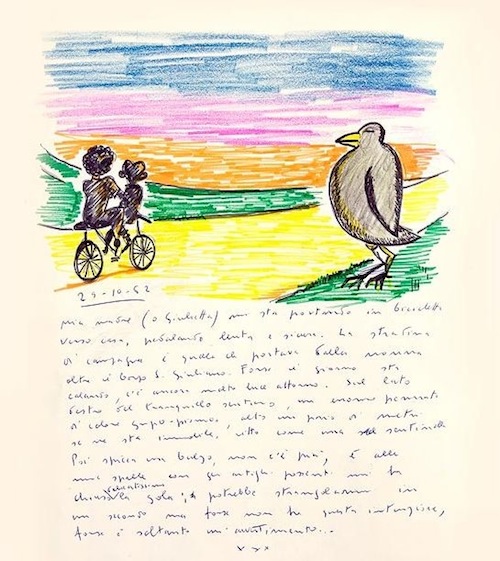 29-10-62
mia madre (o Giulietta) mi sta portando in bicicletta
verso casa, pedalando lenta e sicura. La stradina
di campagna è quella che portava dalla nonna
oltre il borgo S. Giuliano. Forse il giorno sta
calando, c'è ancora molta luce attorno. Sul lato
destro del tranquillo sentiero, un enorme pennuto
di colore grigio-piombo, alto mi pare metri
se ne sta immobile, ritto come una sentinella
Poi spicca un balzo, non c'è più, è alle
mie spalle con gli artigli possenti mi ha
chiuso la gola, delicatissimo potrebbe strangolarmi in
un secondo ma forse non ha questa intenzione,
forse è soltanto un avvertimento...